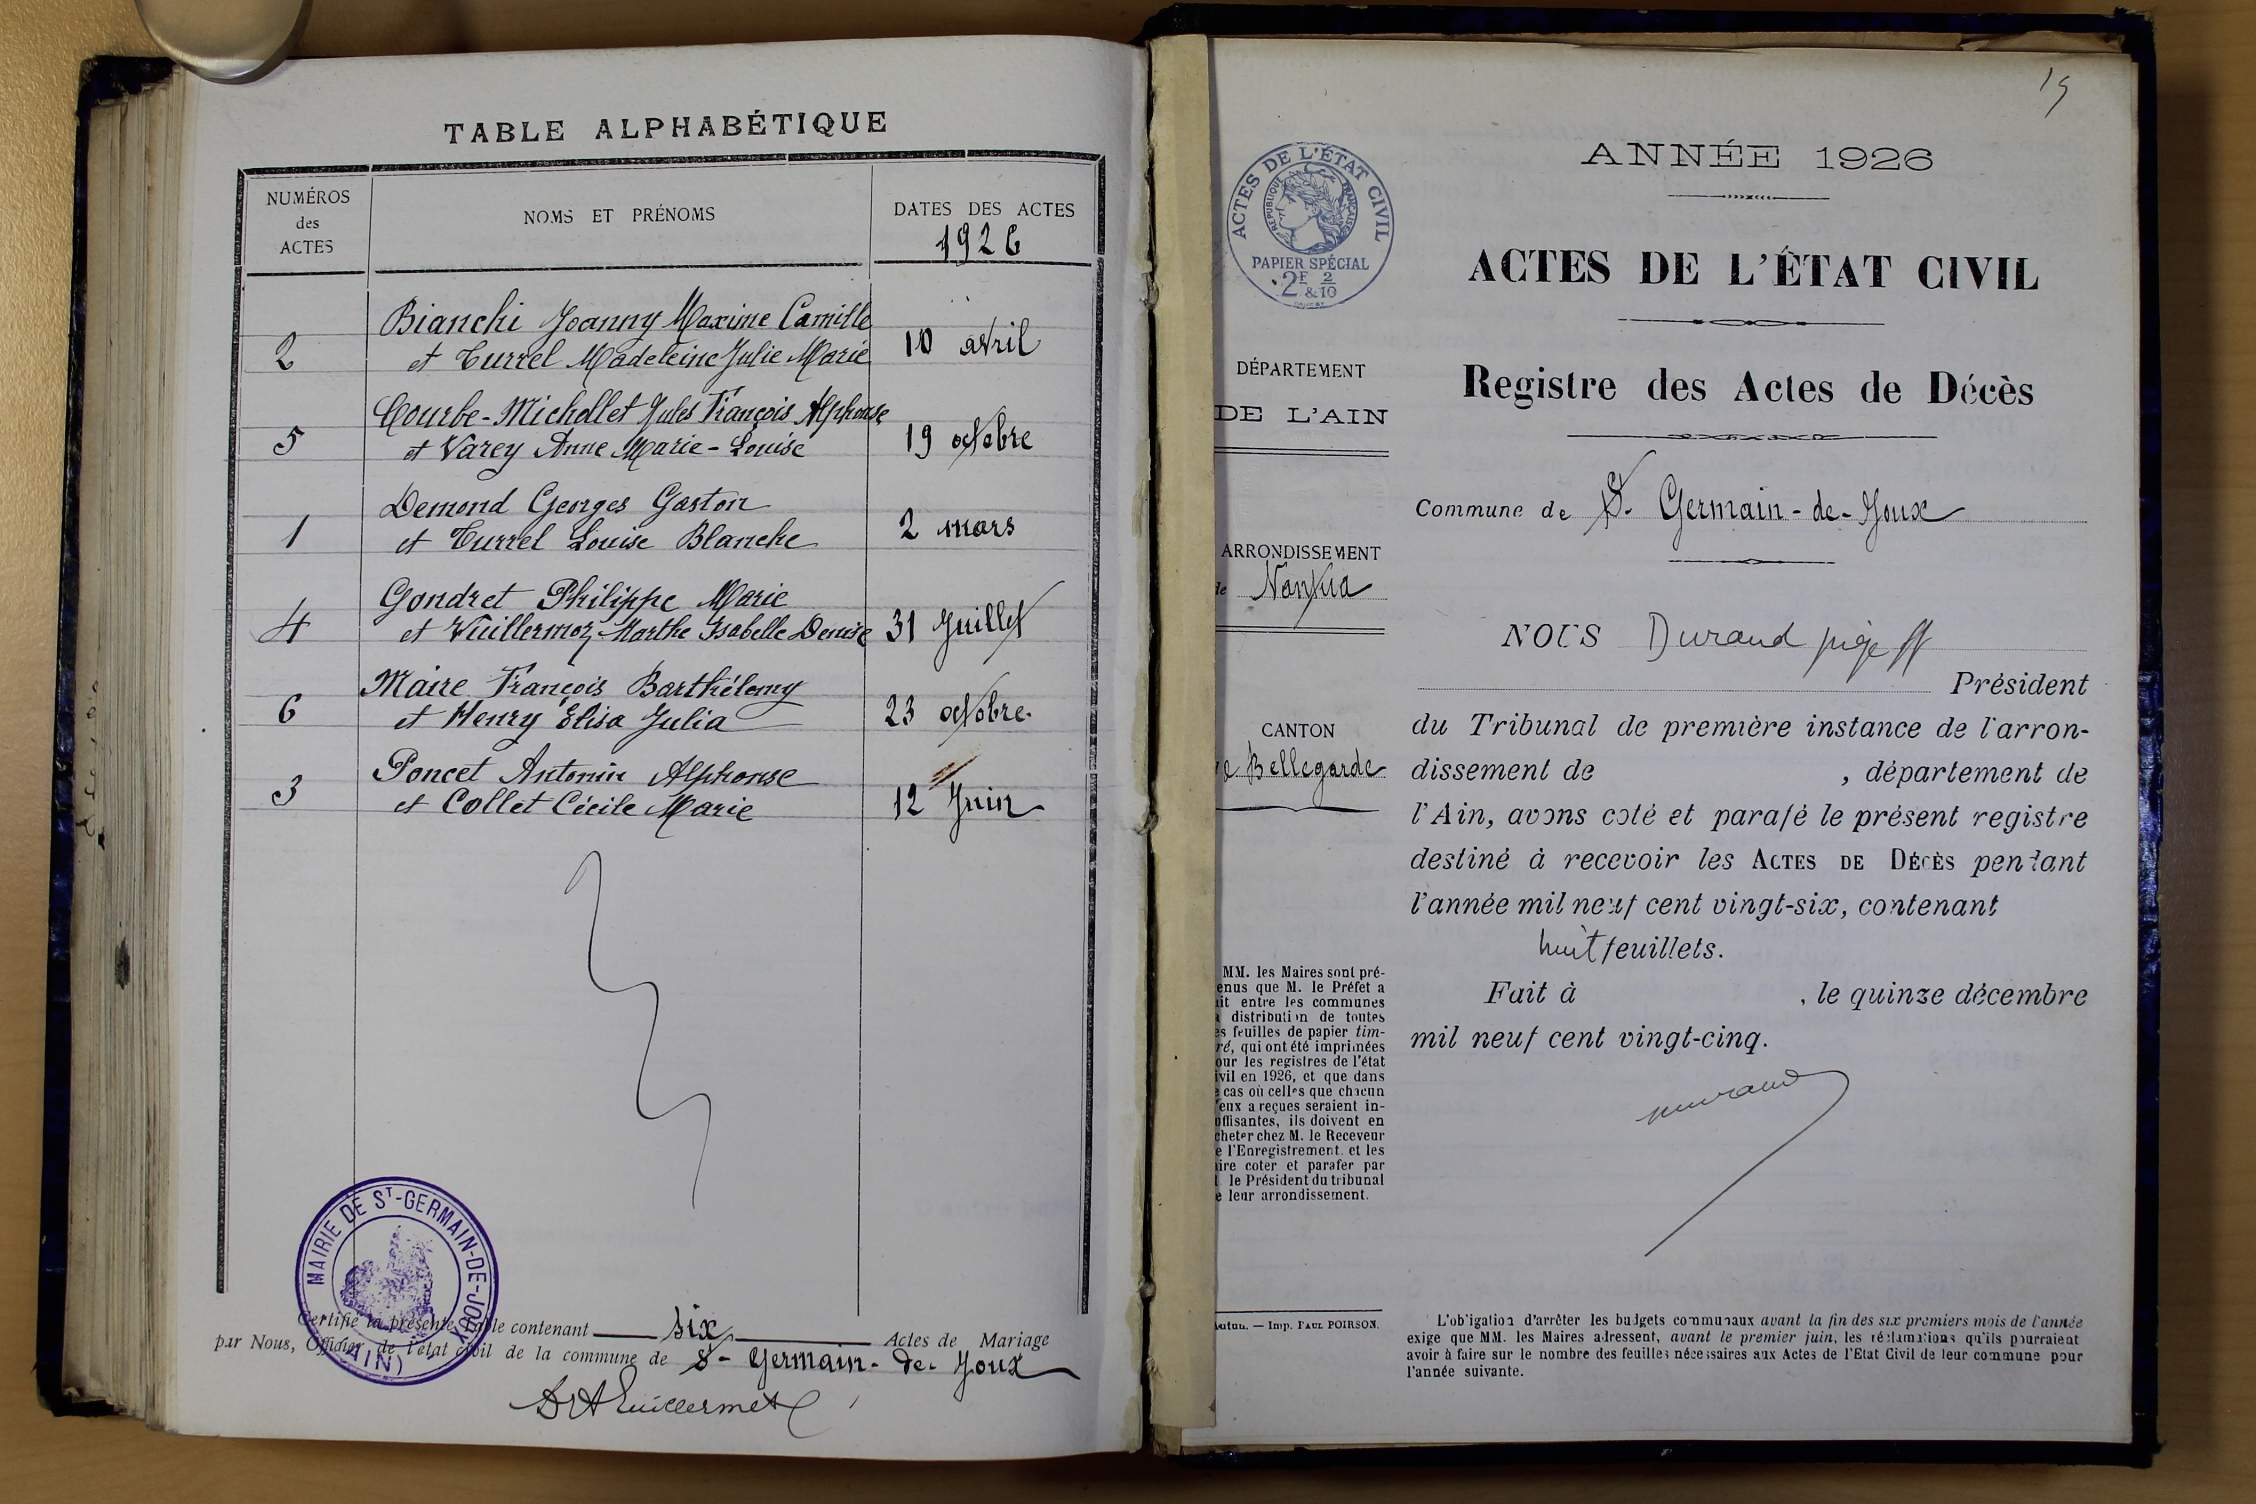 TABLE ALPHABÉTIQUE
NUMÉROS
des
ACTES
NOMS ET PRÉNOMS
DATES DES ACTES
1926
Bianchi Joanny Maxime Camille
2 et Turrel Madeleine Julie Marie 10 avril
Courbe-Michollet Jules François Alphonse
5 et Varey Anne Marie-Louise 19 octobre
Demond Georges Gaston
1 et Turrel Louise Blanche 2 mars
Gondret Philippe Marie
4 et Vuillermoz Marthe Isabelle Denise 31 Juillet
Maire François Barthélemy
6 et Henry Élisa Julia 23 octobre.
Poncet Antonin Alphonse
3 et Collet Cécile Marie 12 Juin
MAIRIE DE ST-GERMAIN-DE-JOUX
(AIN)
Certifié la présente Table contenant six Actes de Mariage
par Nous, Officier de l'état civil de la commune de St-Germain-de-Joux
19
ACTES DE L'ÉTAT CIVIL
RÉPUBLIQUE FRANÇAISE
PAPIER SPÉCIAL
2F & 2/10
DÉPARTEMENT
DE L'AIN
ARRONDISSEMENT
de Nantua
CANTON
de Bellegarde
MM. les Maires sont pré-
enus que M. le Préfet a
it entre les communes
distribution de toutes
es feuilles de papier tim-
ré, qui ont été imprimées
our les registres de l'état
ivil en 1926, et que dans
e cas où celles que chacun
'eux a reçues seraient in-
offisantes, ils doivent en
cheter chez M. le Receveur
e l'Enregistrement et les
ire coter et parafer par
le Président du tribunal
e leur arrondissement.
Autun. — Imp. PAUL POIRSON.
ANNÉE 1926
ACTES DE L'ÉTAT CIVIL
Registre des Actes de Décès
Commune de St. Germain-de-Joux
NOUS Durand juge ff
Président
du Tribunal de première instance de l'arron-
dissement de , département de
l'Ain, avons coté et parafé le présent registre
destiné à recevoir les ACTES DE DÉCÈS pendant
l'année mil neuf cent vingt-six, contenant
huit feuillets.
Fait à , le quinze décembre
mil neuf cent vingt-cinq.
Durand
L'obligation d'arrêter les budgets communaux avant la fin des six premiers mois de l'année
exige que MM. les Maires adressent, avant le premier juin, les réclamations qu'ils pourraient
avoir à faire sur le nombre des feuilles nécessaires aux Actes de l'Etat Civil de leur commune pour
l'année suivante.